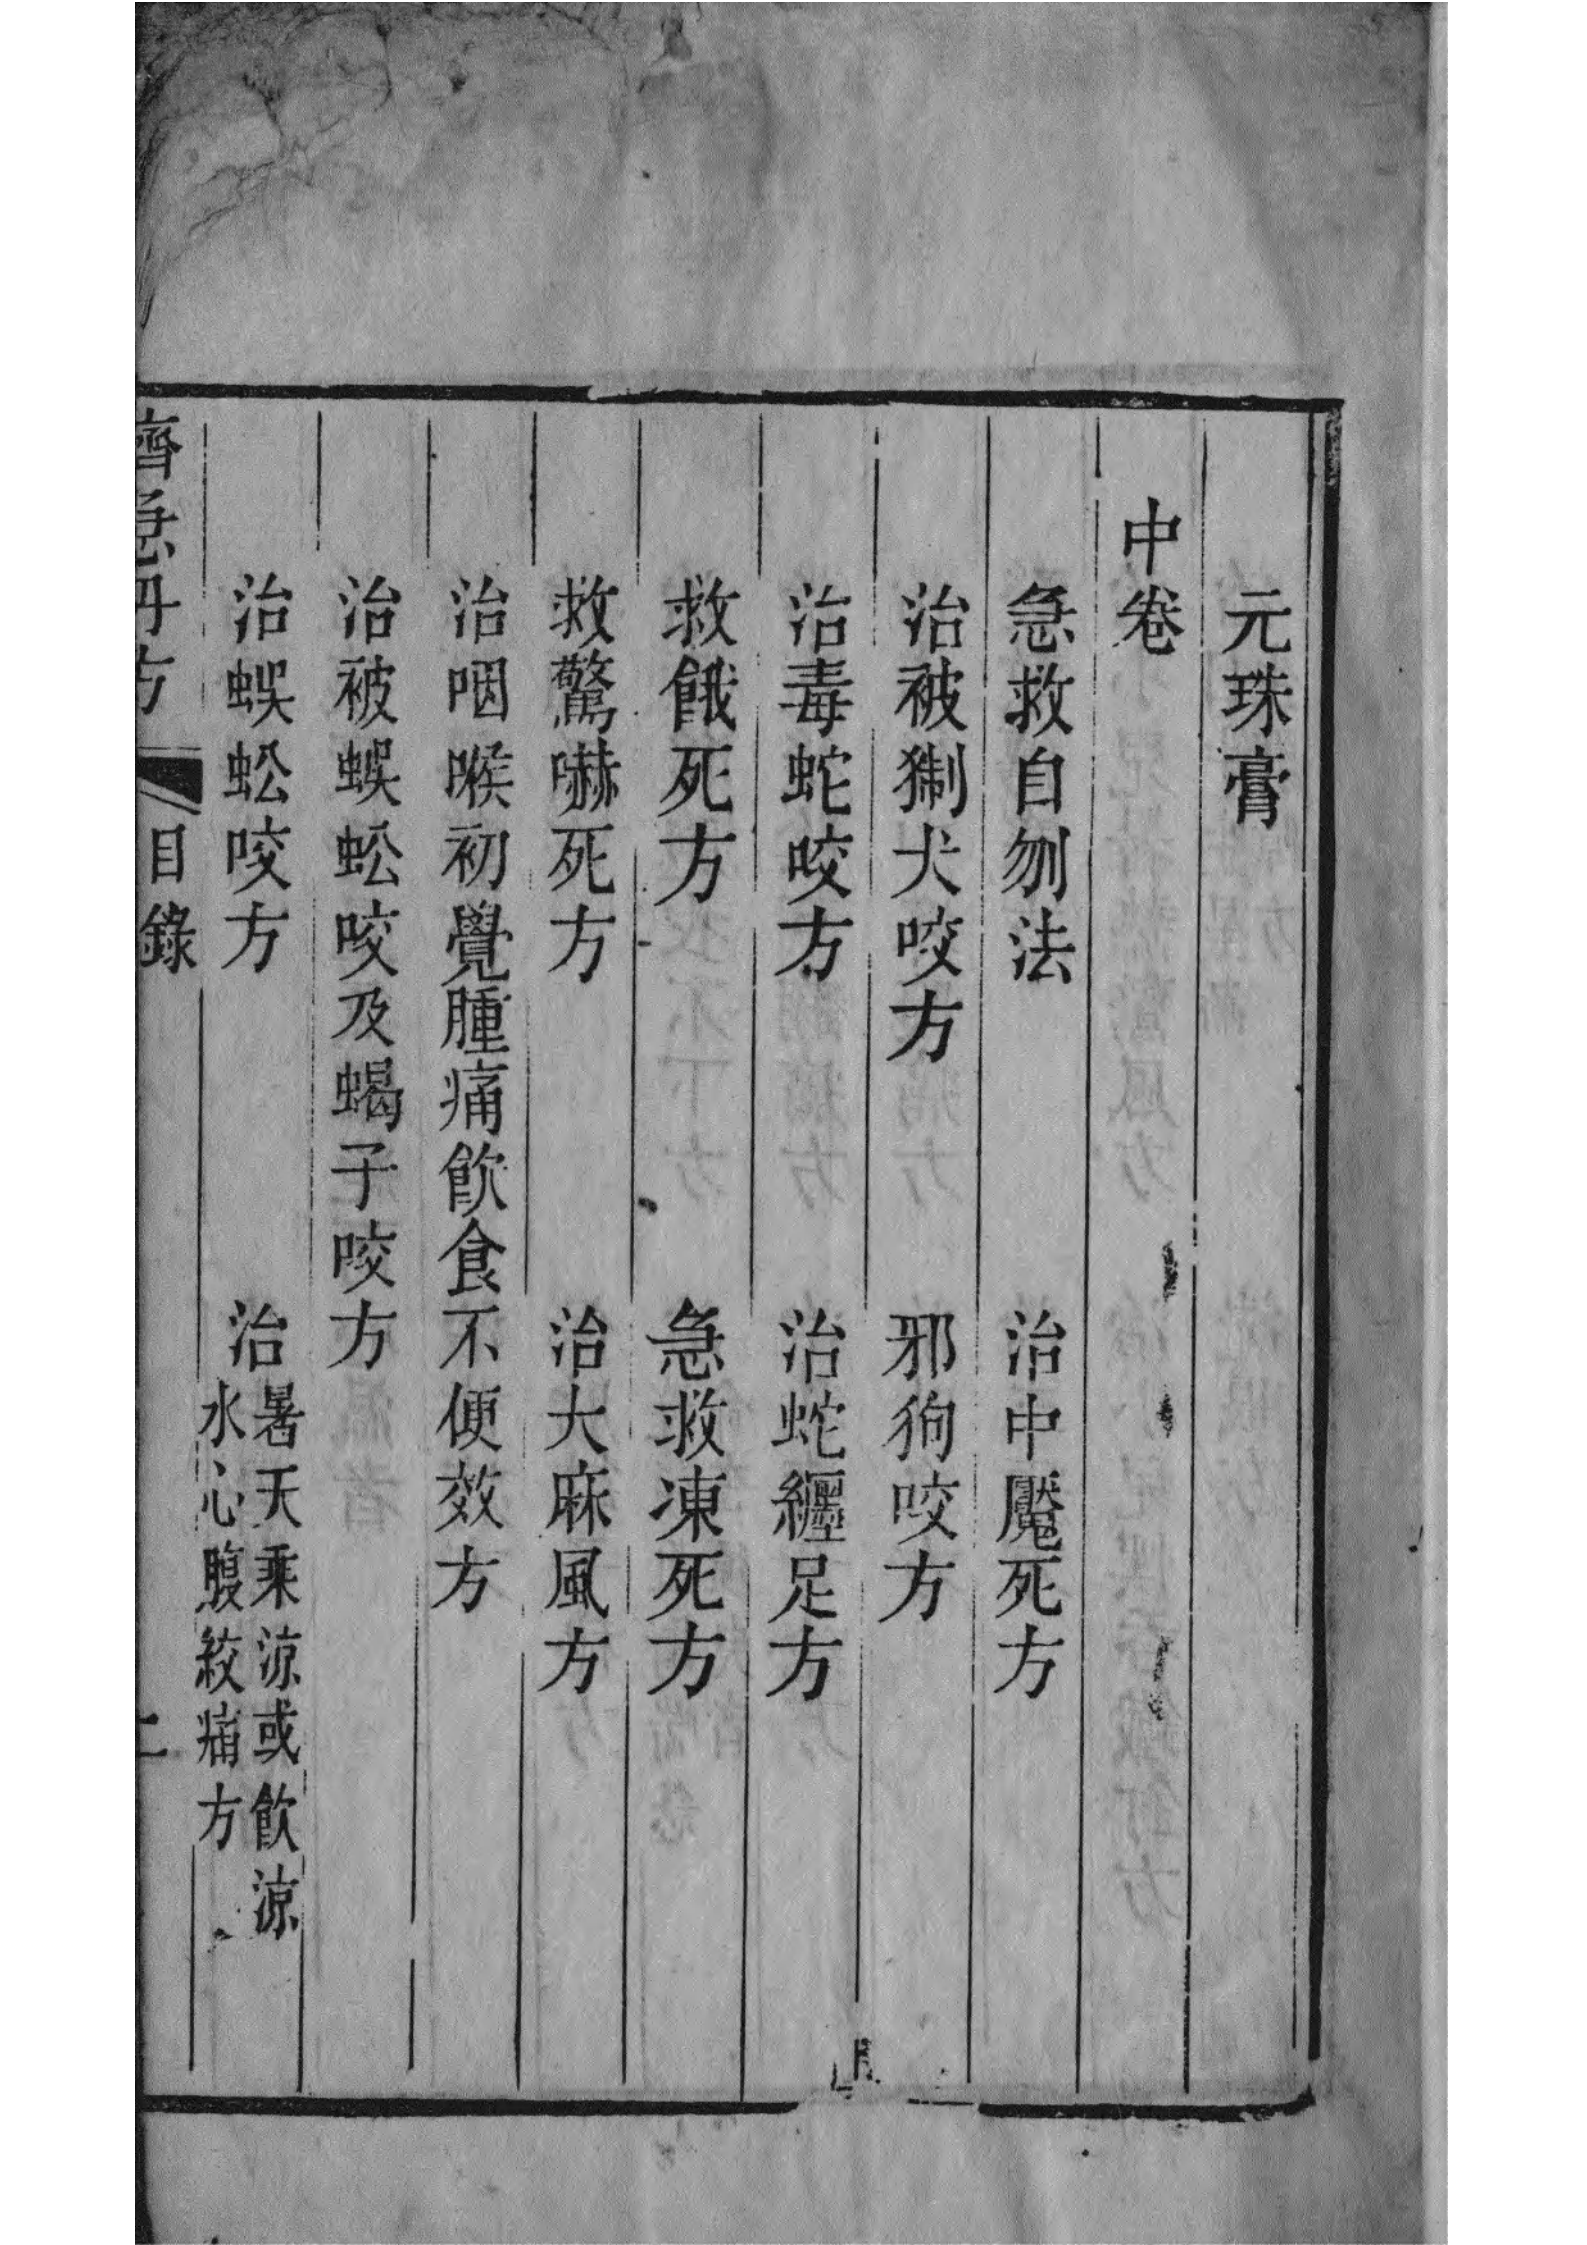 元珠膏
中卷
急救自刎法　治中魘死方
治被猘犬咬方　邪狗咬方
治毒蛇咬方　治蛇纒足方
救餓死方　急救凍死方
救驚嚇死方　治大麻風方
治咽喉初覺腫痛飲食不便效方
治被蜈蚣咬及蝎子咬方
治蜈蚣咬方　治暑天乘涼或飲涼
水心腹絞痛方
濟急丹方　目錄